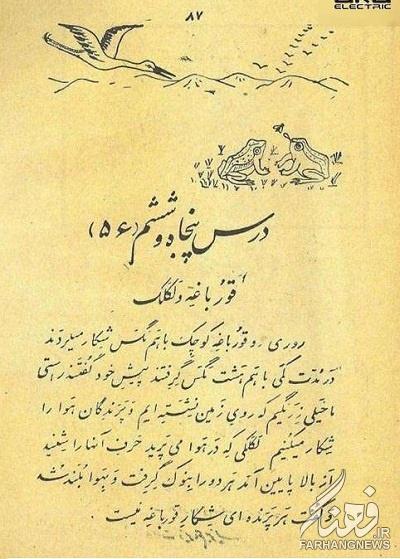 ۸۷
ELECTRIC
درس پنجاه و ششم (۵۶)
قورباغه و لکلک
روزی دو قورباغه کوچک باهم مگس شکار میکردند
در مدت کمی باهم هشت مگس گرفتند پیش خود گفتند راستی
ما خیلی زرنگیم که روی زمین نشسته ایم و پرندگان هوا را
شکار میکنیم لکلکی که در هوا می پرید حرف آنها را شنید
از بالا پایین آمد هر دو را بنوک گرفت و بهوا بلند شد
و گفت هر پرنده ای شکار قورباغه نیست
فرهنگ
.IR
FARHANGNEWS